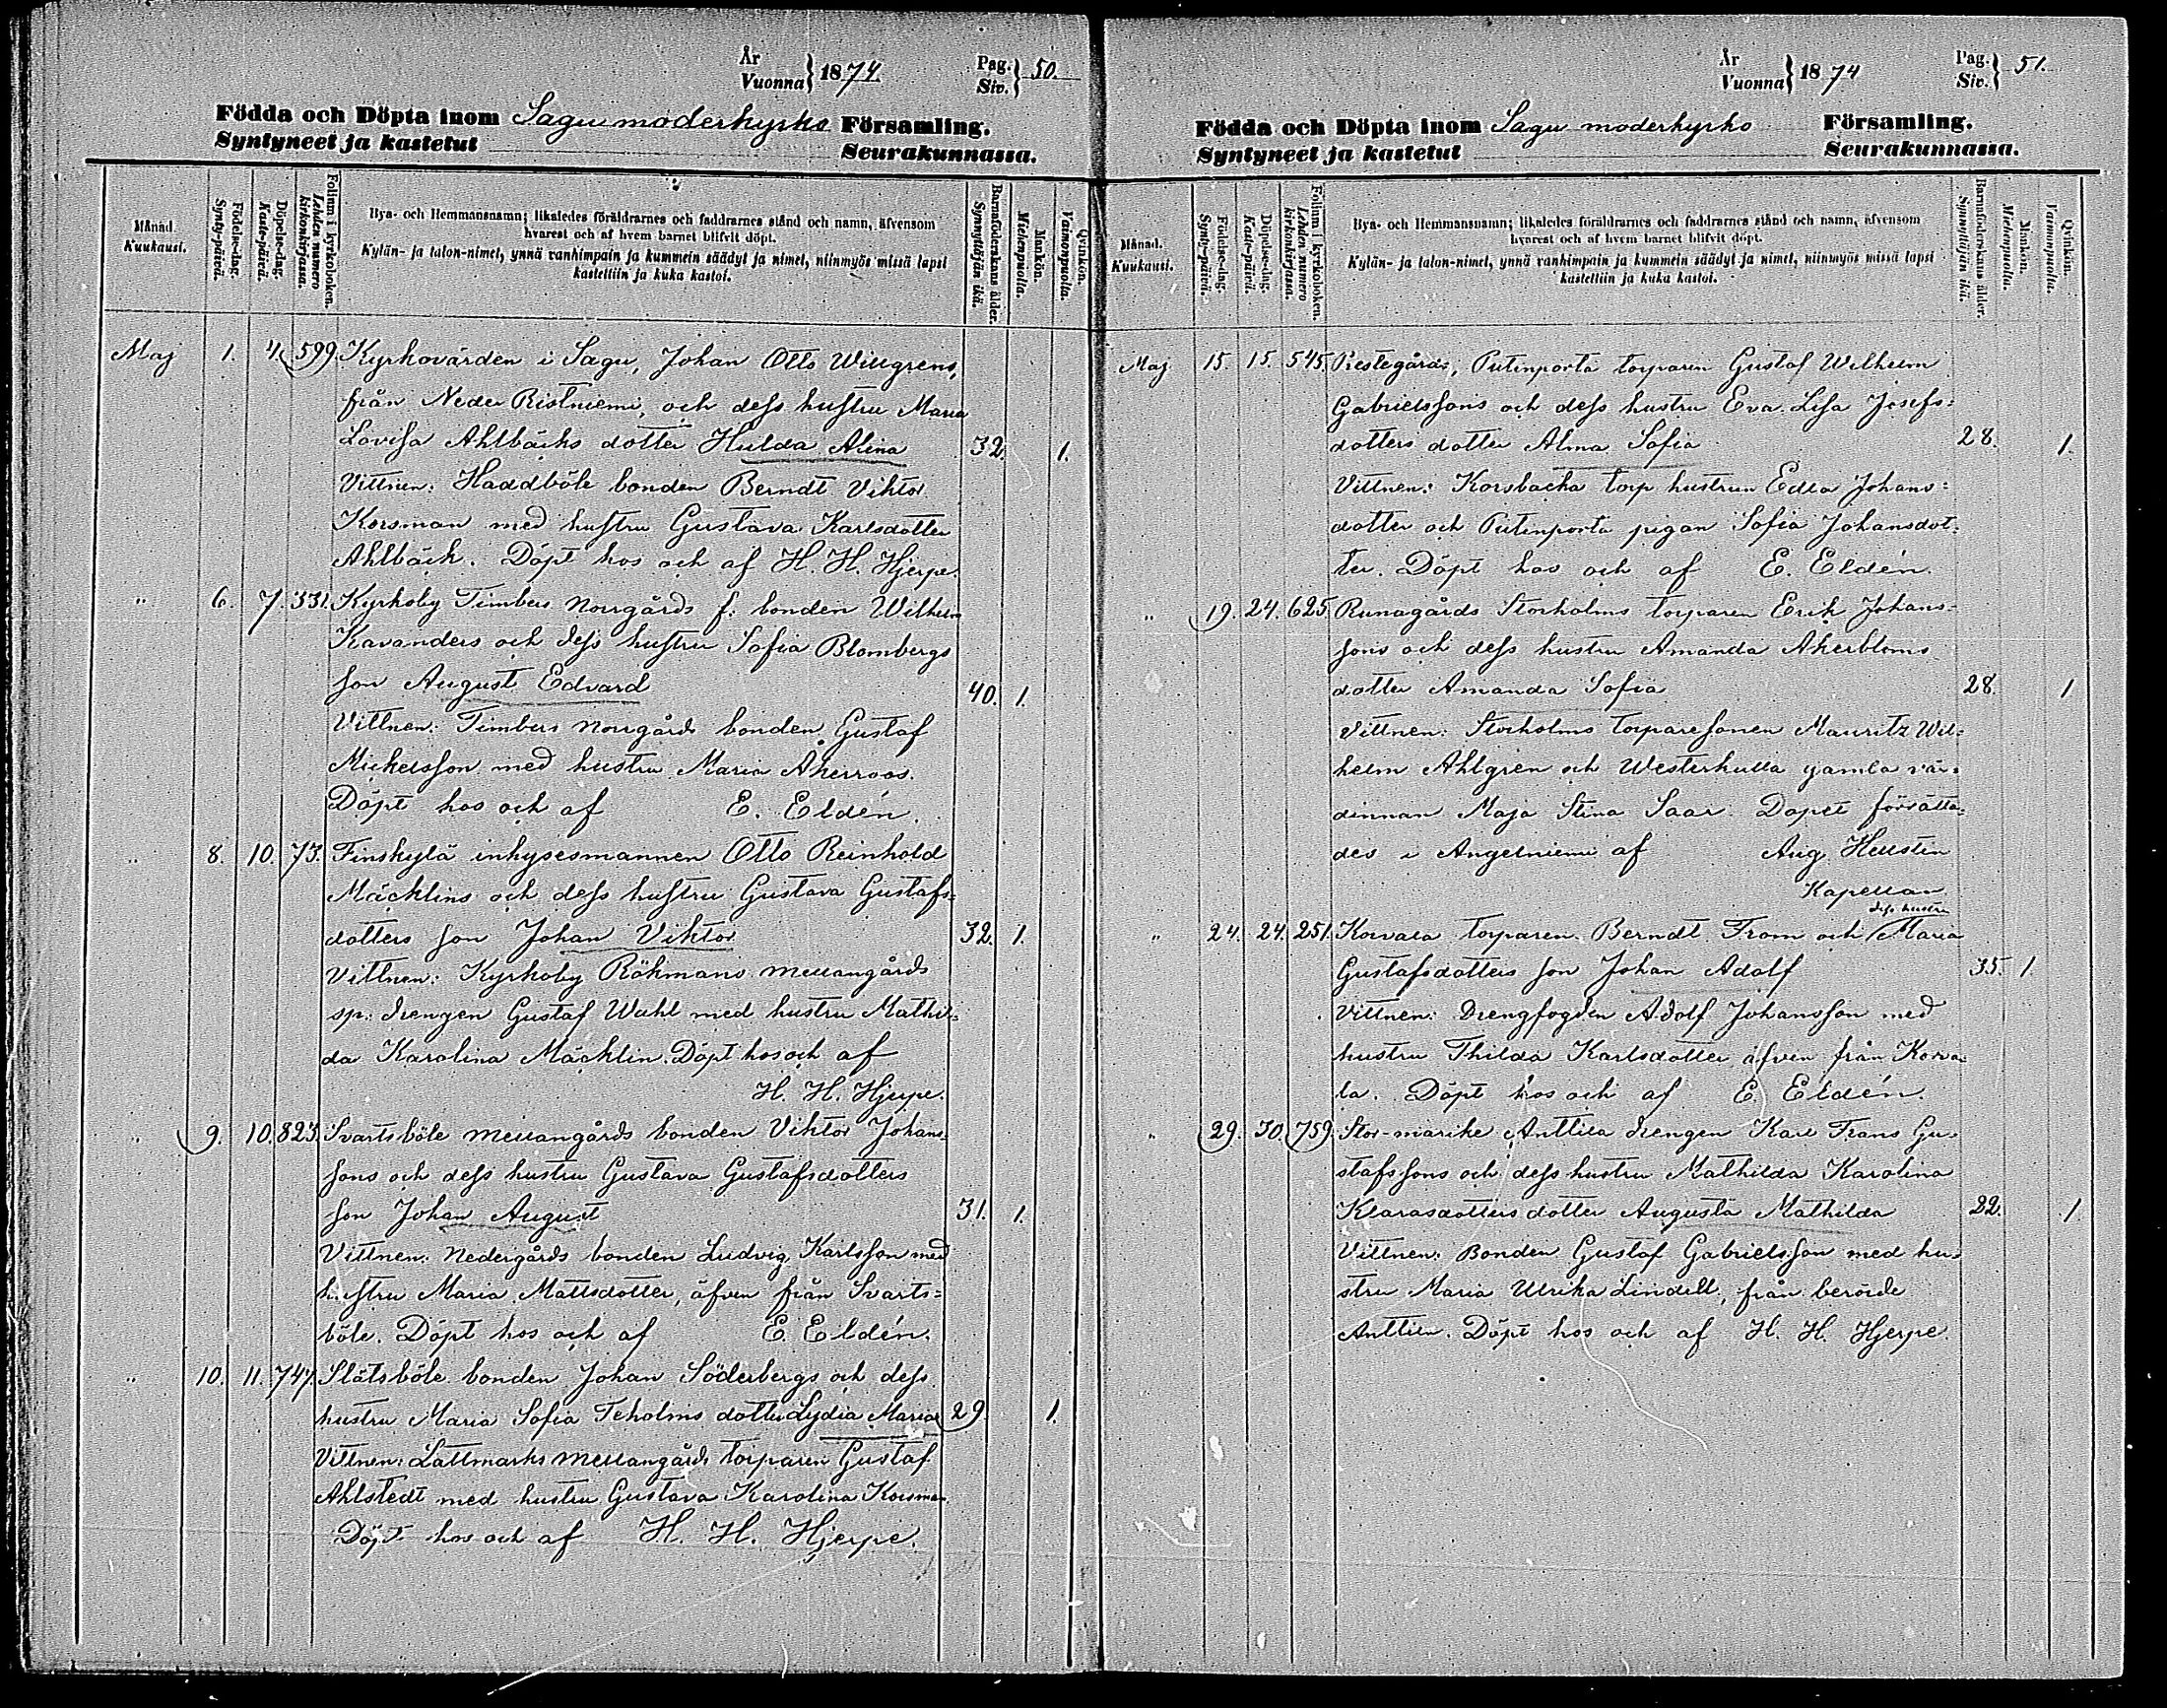 År
Vuonna } 1874.
Pag.
Siv. } 50.
Födda och Döpta inom Sagu moderkyrko Församling.
Syntyneet ja kastetut Seurakunnassa.
Månad.
Kuukausi.
Födelse-dag.
Synty-päivä.
Döpelse-dag.
Kaste-päivä.
Folium i kyrkoboken.
Lehden numero kirkonkirjassa.
Bya- och Hemmansnamn; likaledes föräldrarnes och faddrarnes stånd och namn, äfvensom
hvarest och af hvem barnet blifvit döpt.
Kylän- ja talon-nimet, ynnä vanhimpain ja kummein säädyt ja nimet, niinmyös missä lapsi
kastettiin ja kuka kastoi.
Barnaföderskans ålder.
Synnyttäjän ikä.
Mankön.
Miehenpuolta.
Qvinkön.
Vaimonpuolta.
Maj 1. 4. 599. Kyrkovärden i Sagu, Johan Otto Willgrens,
från Neder Ristniemi, och dess hustru Maria
Lovisa Ahlbäcks dotter Hulda Alina 32. 1.
Vittnen: Haddböle bonden Berndt Viktor
Korsman med hustru Gustava Karlsdotter
Ahlbäck. Döpt hos och af H. H. Hjerpe.
" 6. 7. 331. Kyrkoby Timbers Norrgårds f. bonden Wilhelm
Kavanders och dess hustru Sofia Blombergs
son August Edvard 40. 1.
Vittnen: Timbers Norrgårds bonden Gustaf
Mickelsson med hustru Maria Åkerroos.
Döpt hos och af E. Eldén.
" 8. 10. 73. Finskylä inhysesmannen Otto Reinhold
Mäcklins och dess hustru Gustava Gustafs=
dotters son Johan Viktor 32. 1.
Vittnen: Kyrkoby Rökmans Mellangårds
sp. drengen Gustaf Wahl med hustru Mathil=
da Karolina Mäcklin. Döpt hos och af
H. H. Hjerpe.
" 9. 10. 823. Svartsböle Mellangårds bonden Viktor Johans=
sons och dess hustru Gustava Gustafsdotters
son Johan August 31. 1.
Vittnen: Nedergårds bonden Ludvig Karlsson med
hustru Maria Mattsdotter, äfven från Svarts=
böle. Döpt hos och af E. Eldén.
" 10. 11. 747. Slätsböle bonden Johan Söderbergs och dess
hustru Maria Sofia Teholms dotter Lydia Maria 29. 1.
Vittnen: Lättmarks Mellangårds torparen Gustaf
Ahlstedt med hustru Gustava Karolina Korsman.
Döpt hos och af H. H. Hjerpe.
År
Vuonna } 1874
Pag.
Siv. } 51.
Födda och Döpta inom Sagu moderkyrko Församling.
Syntyneet ja kastetut Seurakunnassa.
Månad.
Kuukausi.
Födelse-dag.
Synty-päivä.
Döpelse-dag.
Kaste-päivä.
Folium i kyrkoboken.
Lehden numero kirkonkirjassa.
Bya- och Hemmansnamn; likaledes föräldrarnes och faddrarnes stånd och namn, äfvensom
hvarest och af hvem barnet blifvit döpt.
Kylän- ja talon-nimet, ynnä vanhimpain ja kummein säädyt ja nimet, niinmyös missä lapsi
kastettiin ja kuka kastoi.
Barnaföderskans ålder.
Synnyttäjän ikä.
Mankön.
Miehenpuolta.
Qvinkön.
Vaimonpuolta.
Maj 15. 15. 545. Prestegårds, Putinporta torparen Gustaf Wilhelm
Gabrielssons och dess hustru Eva Lisa Josefs=
dotters dotter Alma Sofia 28. 1.
Vittnen: Korsbacka torp hustrun Edla Johans=
dotter och Putinporta pigan Sofia Johansdot=
ter. Döpt hos och af E. Eldén.
" 19. 24. 625. Runagårds Storholms torparen Erik Johans=
sons och dess hustru Amanda Åkerbloms
dotter Amanda Sofia 28. 1
Vittnen: Storholms torparesonen Mauritz Wil=
helm Ahlgren och Westerkulla gamla vär=
dinnan Maja Stina Saar. Dopet förrätta=
des i Angelniemi af Aug. Hellstén
Kapellan
dess hustru
" 24. 24. 251. Korvala torparen Berndt From och Maria
Gustafsdotters son Johan Adolf 35. 1.
Vittnen: Drengfogden Adolf Johansson med
hustru Thilda Karlsdotter äfven från Korva=
la. Döpt hos och af E. Eldén.
" 29. 30. 759. Stor-marike Anttila drengen Karl Frans Gu=
stafssons och dess hustru Mathilda Karolina
Klarasdotters dotter Augusta Mathilda 22. 1
Vittnen: Bonden Gustaf Gabrielsson med hu=
stru Maria Ulrika Lindell, från berörde
Anttila. Döpt hos och af H. H. Hjerpe.